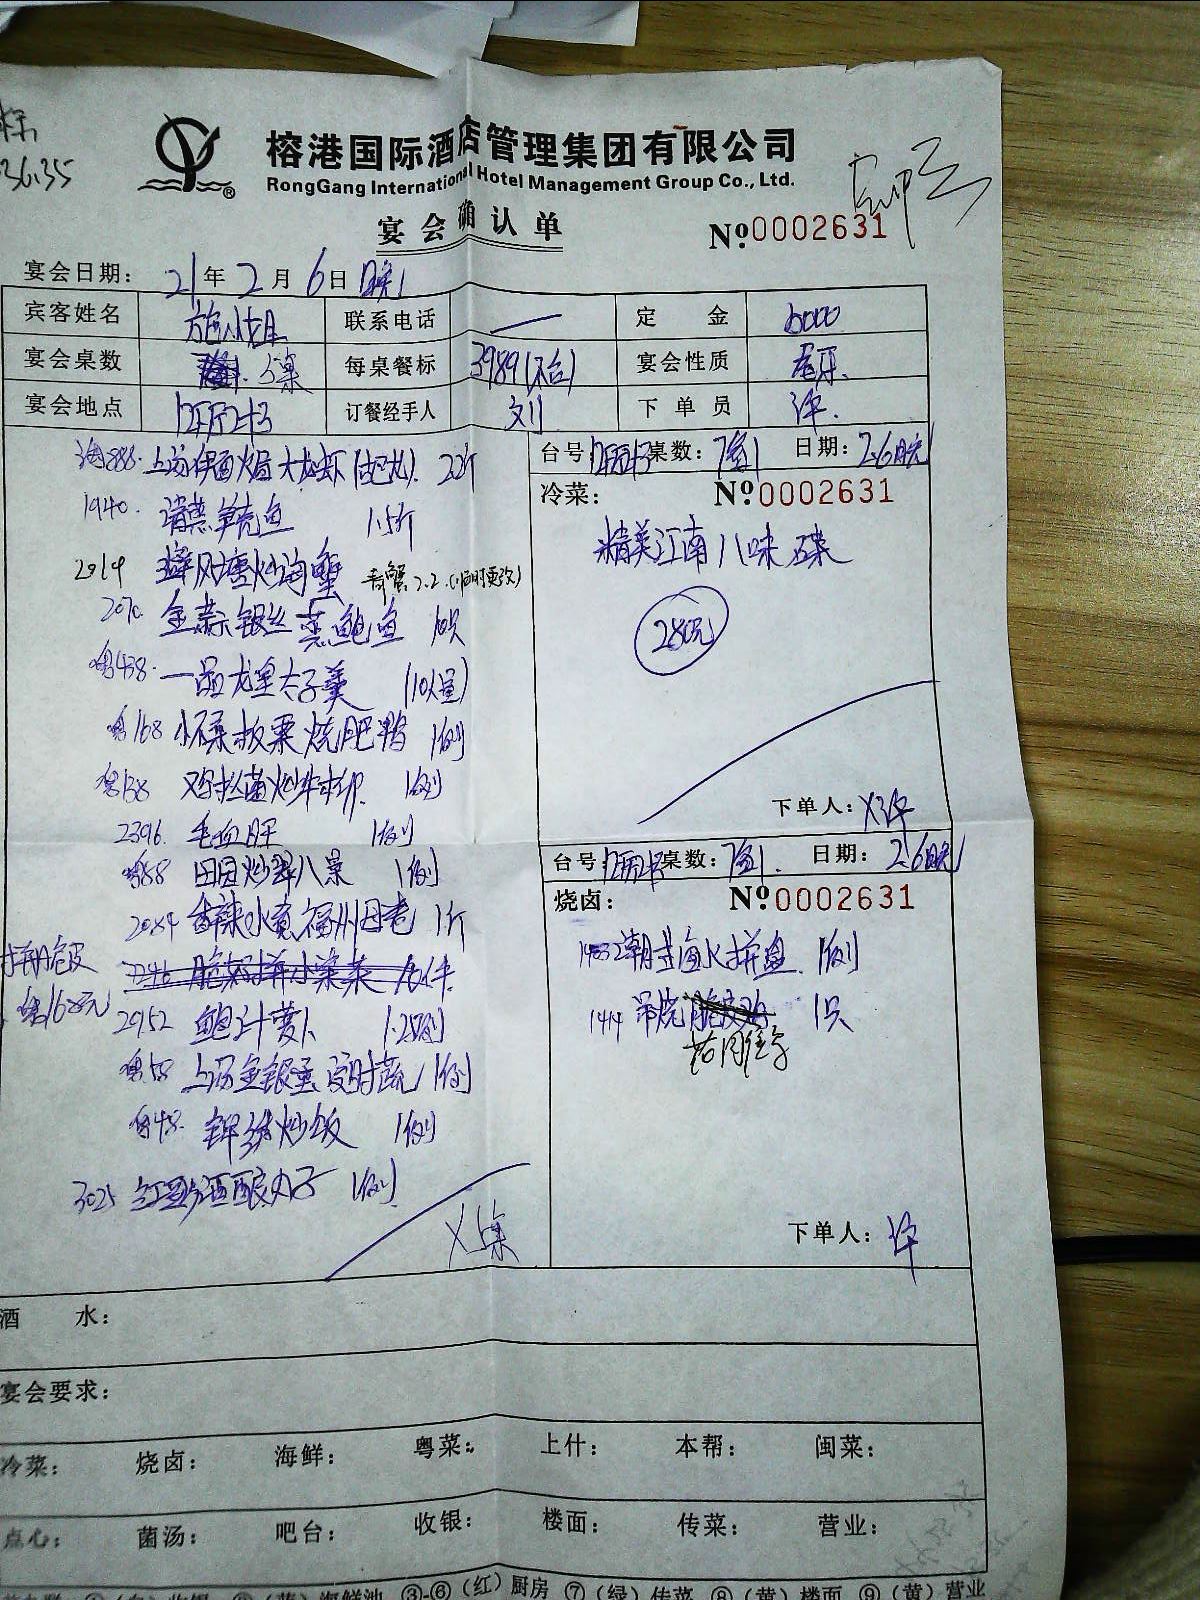 36.35
榕港国际酒店管理集团有限公司
RongGang International Hotel Management Group Co., Ltd.
宴会确认单
№0002631
宴会日期: 21年2月6日 晚
宾客姓名 施小姐 联系电话 定金 6000
宴会桌数 5桌 每桌餐标 3989(不含) 宴会性质 尾牙
宴会地点 订餐经手人 刘 下单员 许
台号: 桌数: 日期: 2.6晚
冷菜: №0002631
精美江南八味碟
280元
下单人: 许
上汤伊面焗大龙虾 2.2斤
1940. 清蒸 鱼 1.5斤
2014 避风塘炒海蟹 青蟹2.2(临时更改)
2070 金蒜银丝蒸鲍鱼 10只
438. 一品龙皇太子羹 (10人量)
168 板栗烧肥鸭 1例
138 鸡枞菌炒牛柳 1例
2396. 毛血旺 1例
88 田园炒翠八景 1例
2084 香辣水煮福州 1斤
168元
2952 鲍汁萝卜 1.2例
58 上汤金银蛋浸时蔬 1例
48. 锦绣炒饭 1例
3025 红 酒酿丸子 1例
X5桌
台号: 桌数: 日期: 2.6晚
烧卤: №0002631
拼盘 1例
1414 吊烧 1只
下单人: 许
酒水:
宴会要求:
冷菜: 烧卤: 海鲜: 粤菜: 上什: 本帮: 闽菜:
点心: 菌汤: 吧台: 收银: 楼面: 传菜: 营业:
③-⑥(红)厨房 ⑦(绿)传菜 ⑧(黄)楼面 ⑨(黄)营业